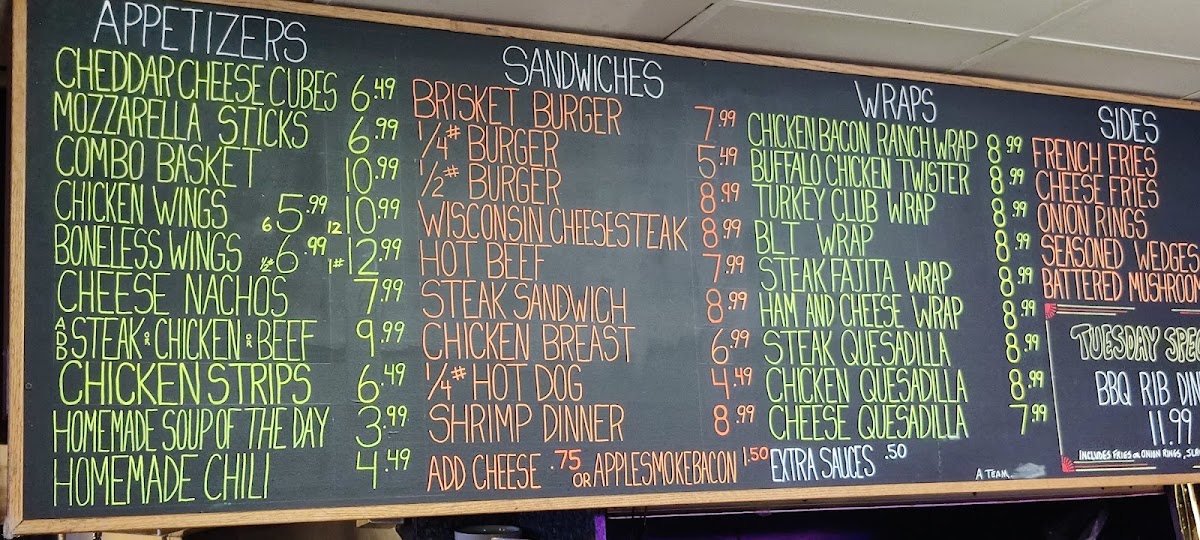 APPETIZERS
CHEDDAR CHEESE CUBES 6.49
MOZZARELLA STICKS 6.99
COMBO BASKET 10.99
CHICKEN WINGS 6 5.99 12 10.99
BONELESS WINGS ½# 6.99 1# 12.99
CHEESE NACHOS 7.99
ADD STEAK OR CHICKEN OR BEEF 9.99
CHICKEN STRIPS 6.49
HOMEMADE SOUP OF THE DAY 3.99
HOMEMADE CHILI 4.49
SANDWICHES
BRISKET BURGER 7.99
1/4# BURGER 5.49
1/2# BURGER 8.99
WISCONSIN CHEESESTEAK 8.99
HOT BEEF 7.99
STEAK SANDWICH 8.99
CHICKEN BREAST 6.99
1/4# HOT DOG 4.49
SHRIMP DINNER 8.99
ADD CHEESE .75 OR APPLESMOKE BACON 1.50
WRAPS
CHICKEN BACON RANCH WRAP 8.99
BUFFALO CHICKEN TWISTER 8.99
TURKEY CLUB WRAP 8.99
BLT WRAP 8.99
STEAK FAJITA WRAP 8.99
HAM AND CHEESE WRAP 8.99
STEAK QUESADILLA 8.99
CHICKEN QUESADILLA 8.99
CHEESE QUESADILLA 7.99
EXTRA SAUCES .50
A TEAM
SIDES
FRENCH FRIES
CHEESE FRIES
ONION RINGS
SEASONED WEDGES
BATTERED MUSHROOM
TUESDAY SPE
BBQ RIB DIN
11.99
INCLUDES FRIES OR ONION RINGS, SLA